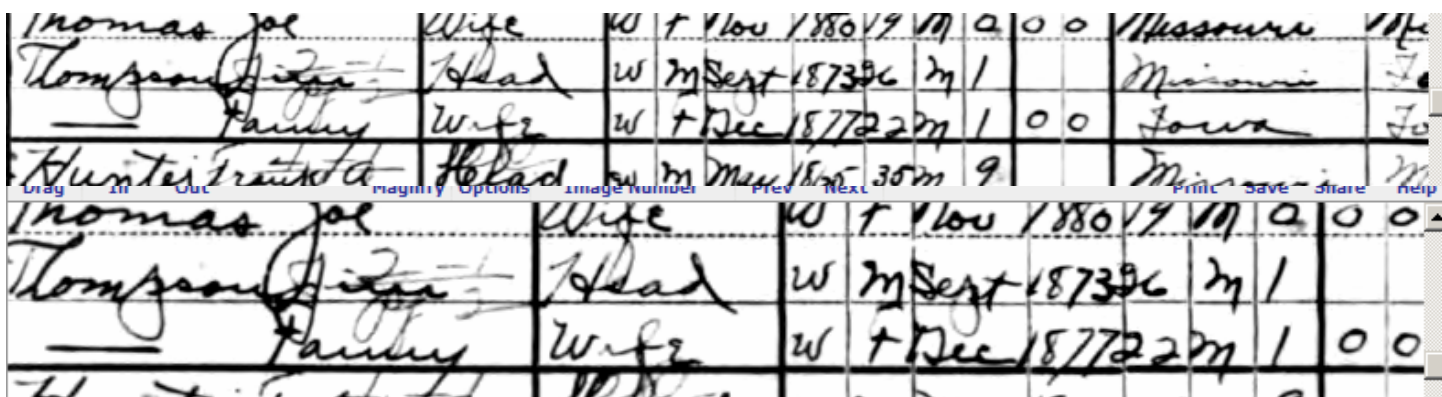 Thomas Joe Wife W F Nov 1880 19 M 0 0 0 Missouri
Thompson Head W M Sept 1873 26 M 1 Missouri
— Fanny Wife W F Dec 1877 22 M 1 0 0 Iowa
Hunter Frank Head W M May 35 M 9
Drag In Out Magnify Options Image Number Prev Next Print Save Share Help
Thomas Joe Wife W F Nov 1880 19 M 0 0 0
Thompson Head W M Sept 1873 26 M 1
— Fanny Wife W F Dec 1877 22 M 1 0 0